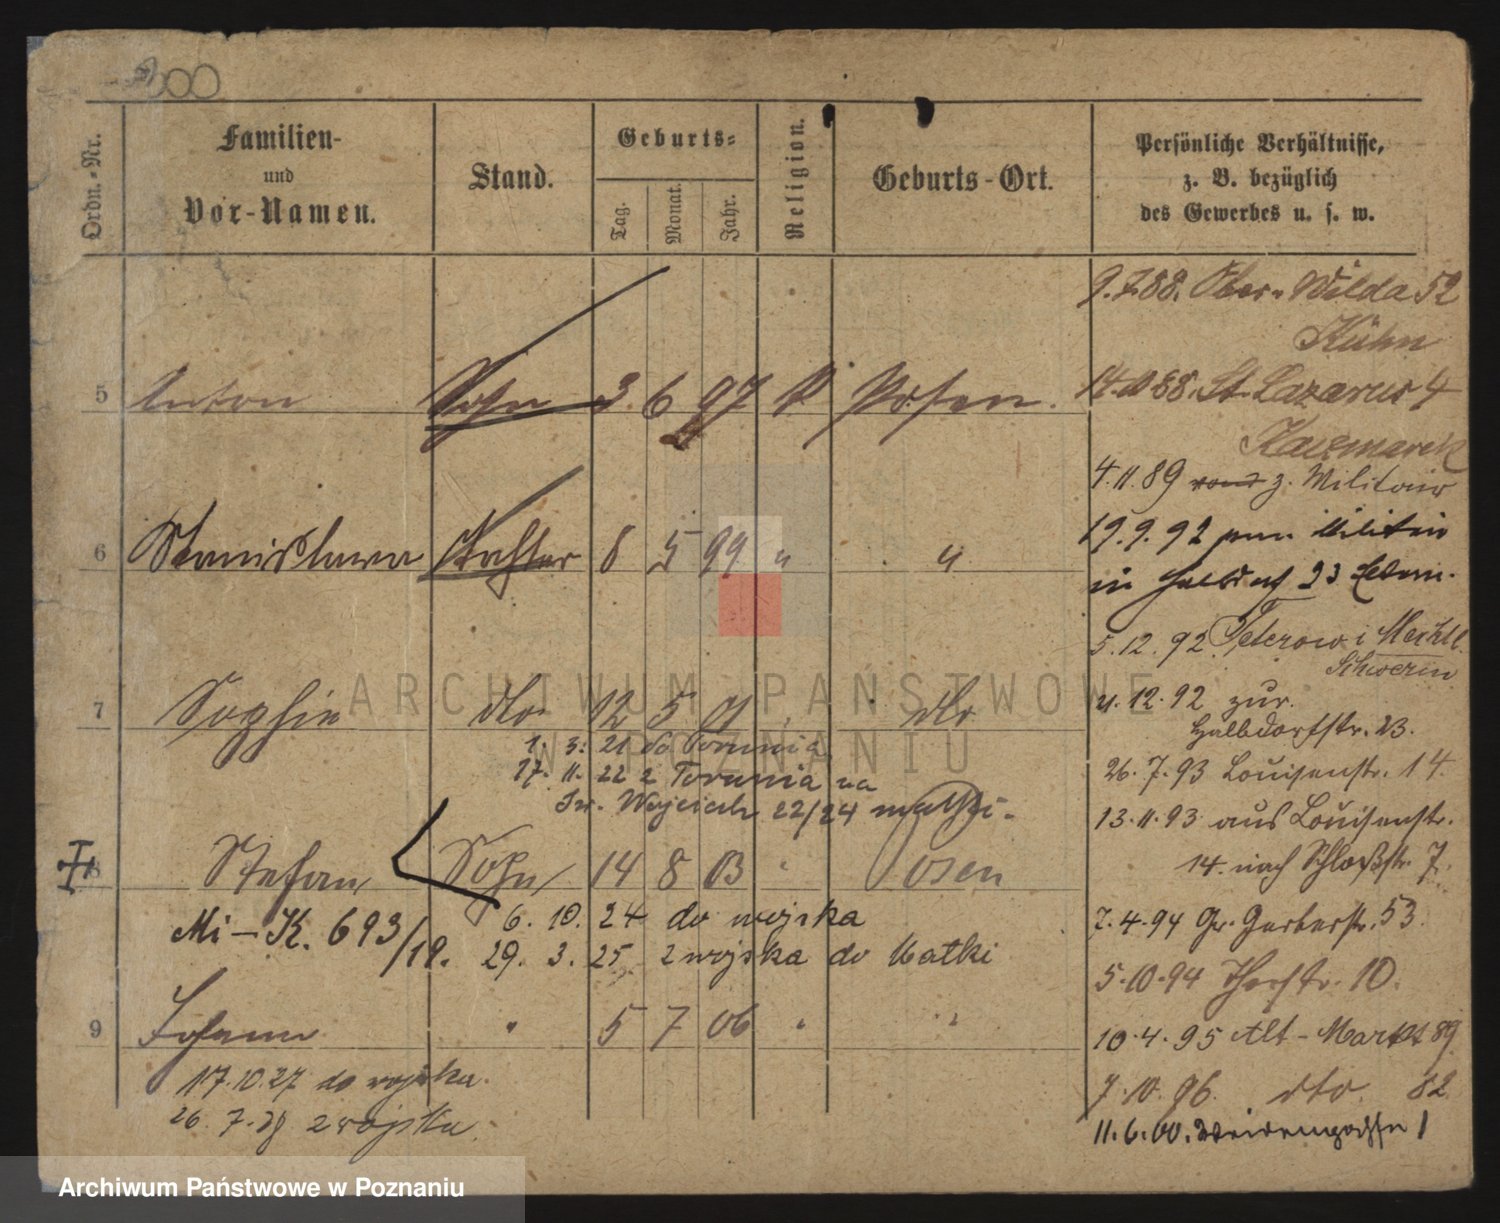 Ordn.-Nr.
Familien-
und
Vor-Namen.
Stand.
Geburts-
Tag.
Monat.
Jahr.
Religion.
Geburts-Ort.
Persönliche Verhältnisse,
z. B. bezüglich
des Gewerbes u. s. w.
5 Anton Sohn 3 6 97 K Posen.
6 Stanislawa Tochter 8 5 99 " "
7 Sophie dto 12 5 01 dto
1. 3. 21 do Torunia
17. 11. 22 z Torunia na
Św. Wojciech 22/24 matki.
8 Stefan Sohn 14 8 03 Posen
Mi-K. 693/19.
6. 10. 24 do wojska
29. 3. 25 z wojska do Matki
9 Johann " 5 7 06 " "
17.10.27 do wojska.
26. 7. 28 z wojska.
9.7.88. Ober-Wilda 52
Kühn
14.10.88. St. Lazarus 4
Kaczmarek
4.11.89 z. Militair
19.9.92 vom Militair
in Halbdorf 23
5.12.92. Teterow i Meckl.
Schwerin
12.92 zur.
Halbdorfstr. 23.
26.7.93 Louisenstr. 14.
13.11.93 aus Louisenstr.
14. nach Schloßstr. 7.
7.4.94 Gr. Gerberstr. 53.
5.10.94 Thorstr. 10.
10.4.95 Alt-Markt 89
7.10.96. dto. 82
11.6.00. 1
ARCHIWUM PAŃSTWOWE
W POZNANIU
Archiwum Państwowe w Poznaniu